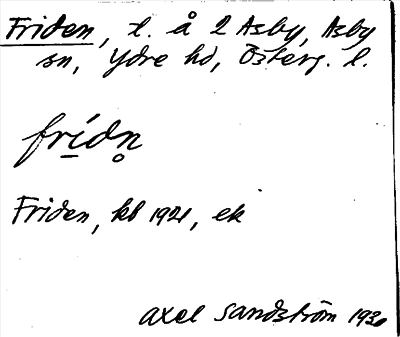 Friden, t. å 2 Asby, Asby
sn, Ydre hd, Österg. l.
frı̲́dn̥
Friden, kb 1921, ek
Axel Sandström 1930